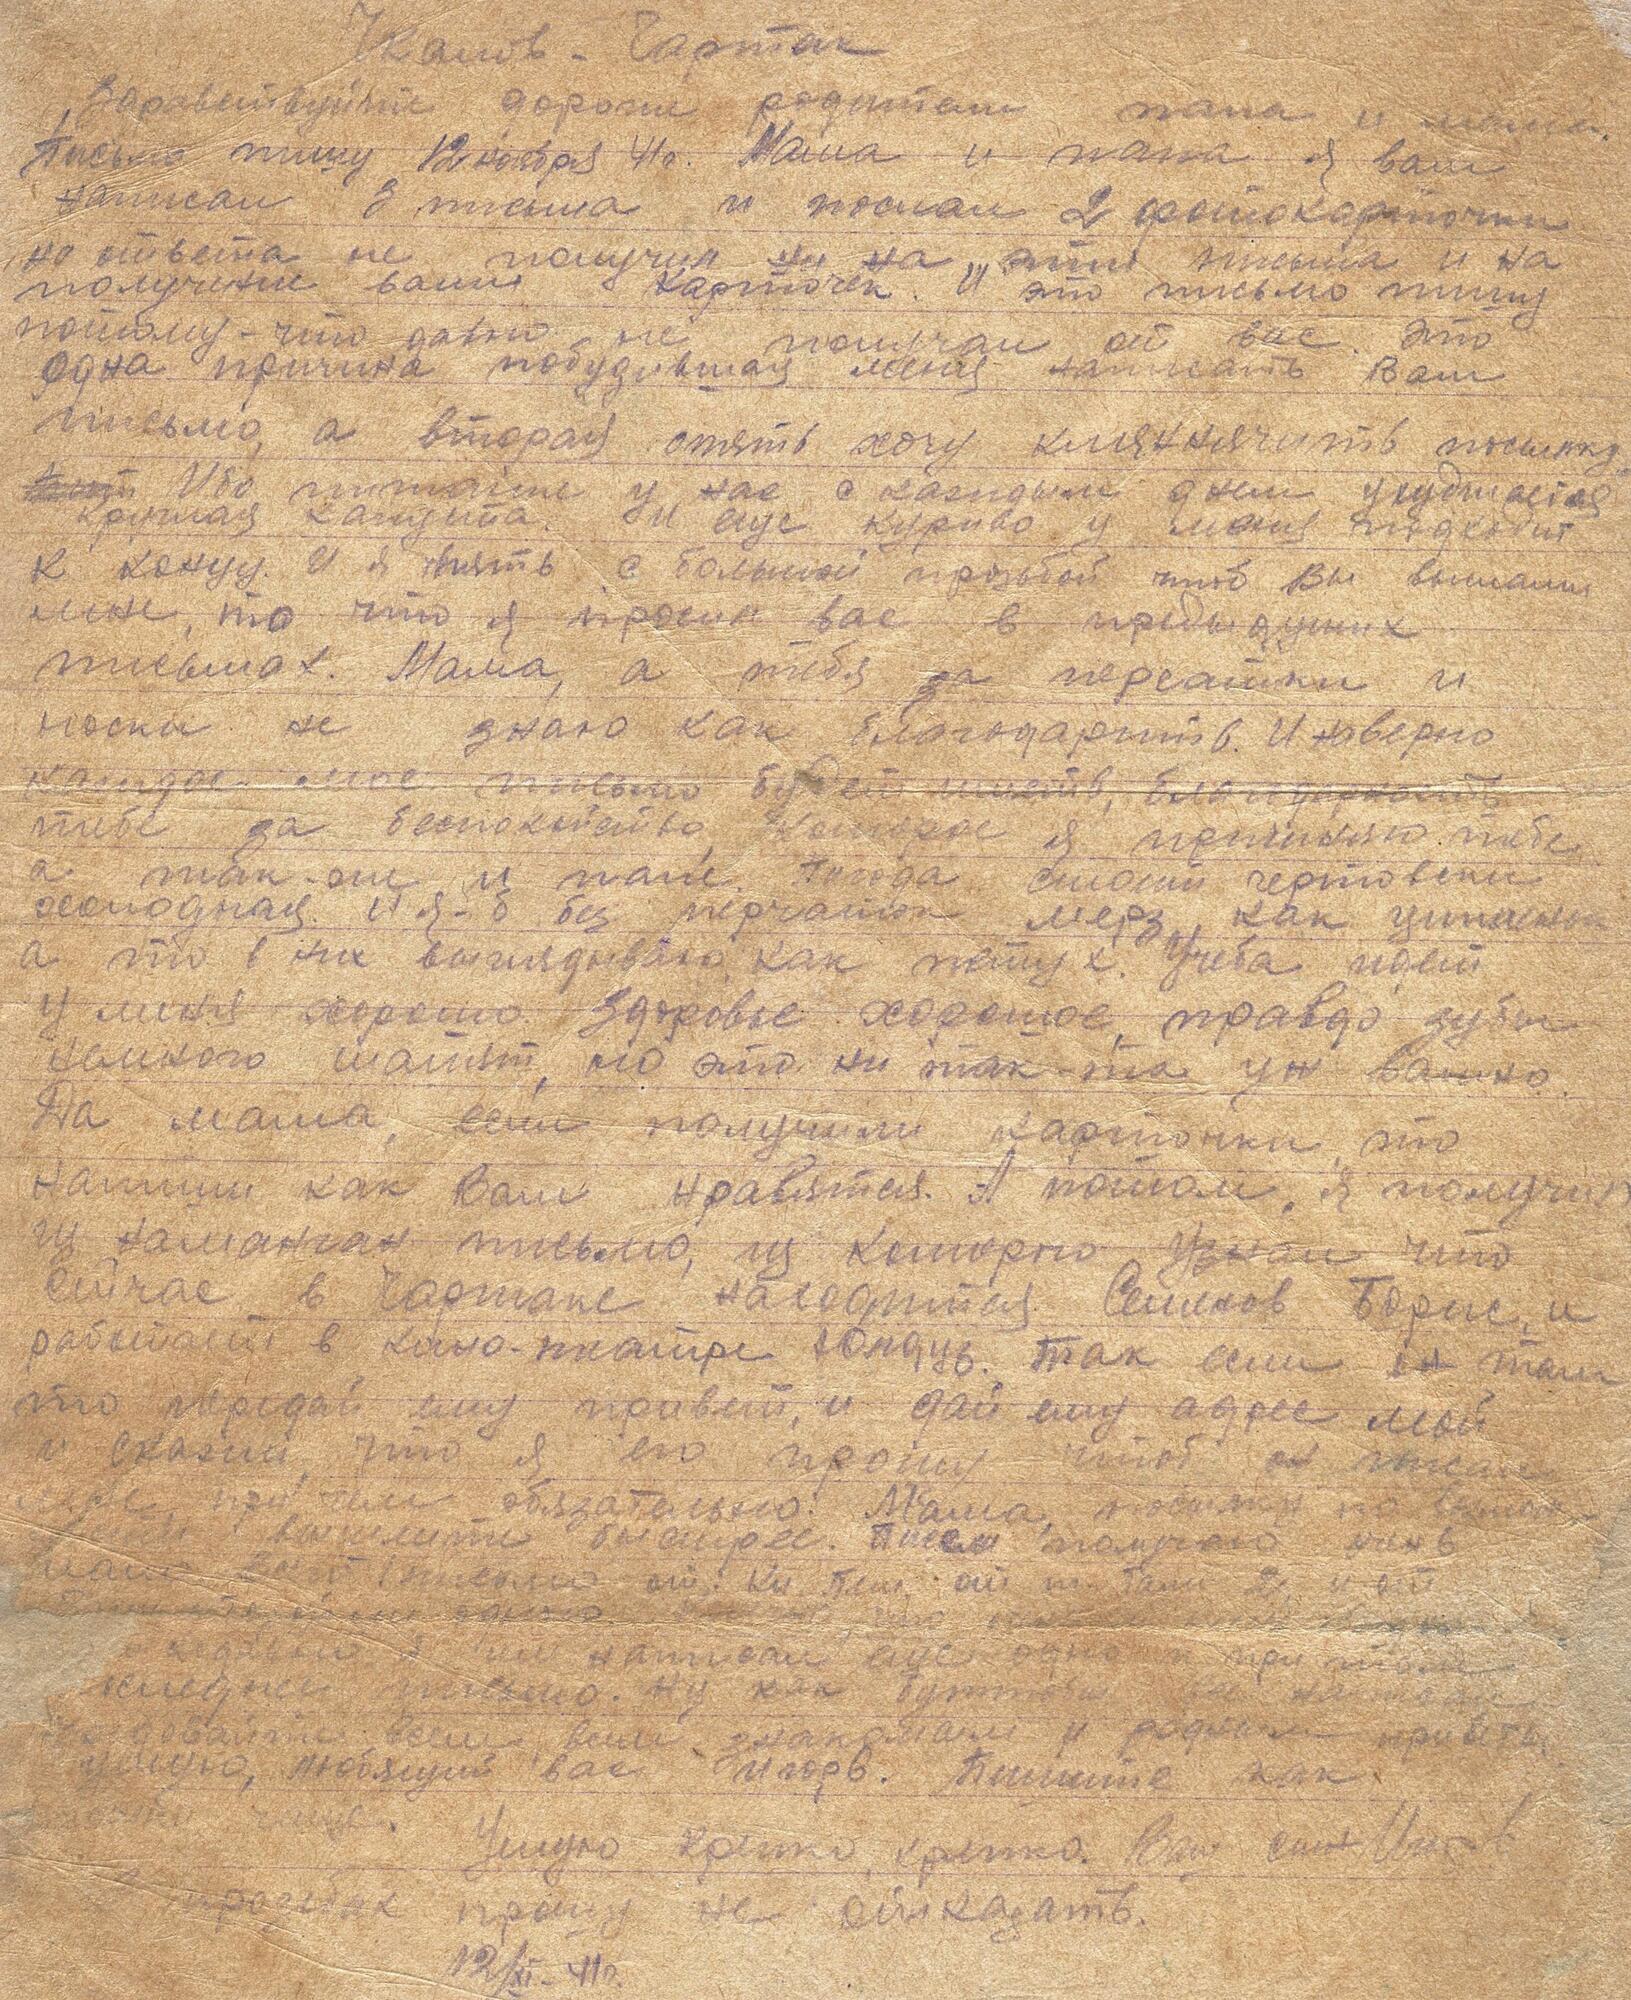 Чкалов - Чартак
Здравствуйте дорогие родители папа и мама.
Письмо пишу 12 ноября 41г. Мама и папа я вам
написал 3 письма и послал 2 фотокарточки
но ответа не получил ни на эти письма и на
получение вами карточек. И это письмо пишу
потому-что давно не получал от вас. Это
одна причина побудившая меня написать Вам
письмо, а вторая опять хочу клянчить посылку.
Ибо питание у нас с каждым днем ухудшается
круглая капуста. И еще курево у меня подходит
к концу. И я опять с большой прозьбой чтоб Вы выслали
мне, то что я просил вас в предыдущих
письмах. Мама, а тебя за перчатки и
носки не знаю как благодарить. И наверно
каждое мое письмо будет иметь, благодарность
тебе за беспокойство, которое я причиняю тебе
а так-же и папе. Погода стоит чертовски
холодная. И я-б без перчаток мерз, как
а то в них выглядываю, как петух. Учеба идет
у меня хорошо. Здоровье хорошое, правдо зубы
немного шалят, но это ни так-та уж важно.
Да мама, если получили карточки, то
напиши как Вам нравятся. А потом, я получил
из Наманган письмо, из которго узнал что
сейчас в Чартаке находится Семенов Борис, и
работает в кино-театре Юлдуз. Так если он там
то передай ему привет, и дай ему адрес мой
и скажи, что я его прошу чтоб он писал
мне, при чем обязательно. Мама, посылку по
вышлите быстрее. Писем получаю очень
мало. письмо от от 2, и от
одно.
я им написал еще одно и при том
последнее письмо. Ну как
всем, всем знакомым и родным приветы.
целую, любящий вас Игорь. Пишите как
Целую крепко, крепко. Ваш сын Игорь
прозьбах прошу не отказать.
12/XI-41г.